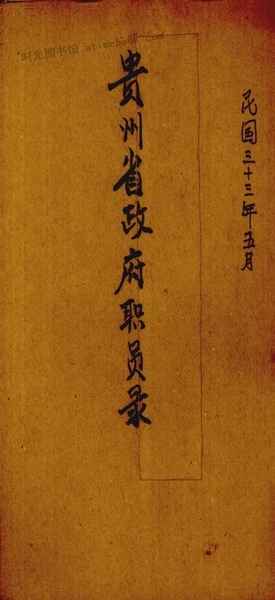 民国三十三年五月
贵州省政府职员录
时光图书馆